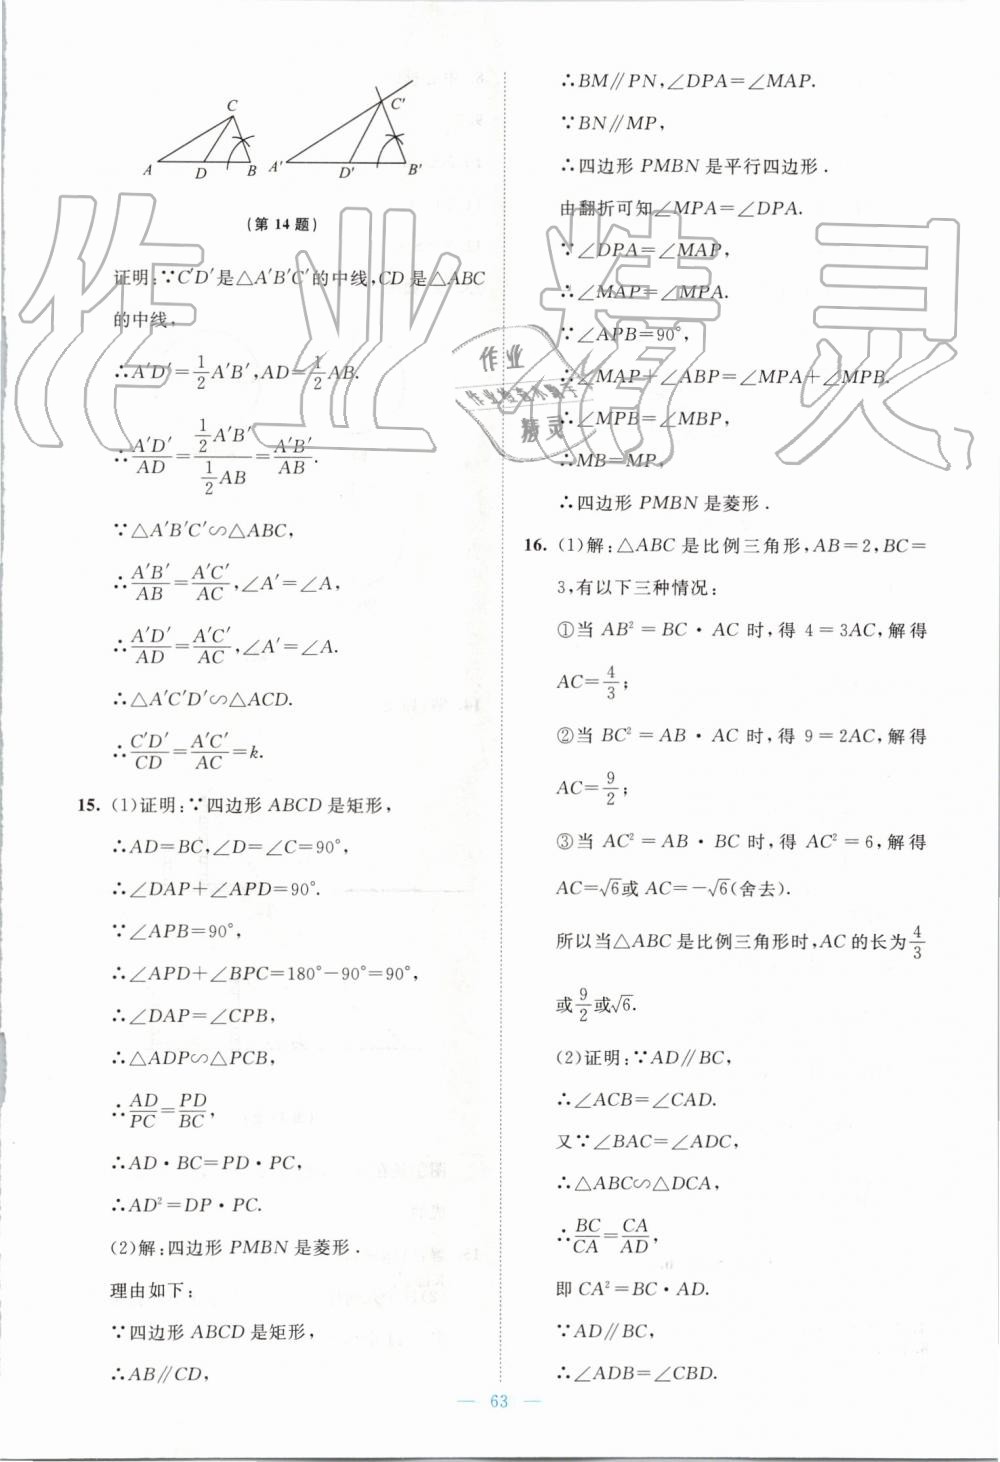 C
A
D
B
C′
A′
D′
B′
(第14题)
证明:∵C′D′是△A′B′C′的中线,CD是△ABC
的中线,
∴A′D′=1/2 A′B′,AD=1/2 AB.
∴A′D′/AD=(1/2 A′B′)/(1/2 AB)=A′B′/AB.
∵△A′B′C′∽△ABC,
∴A′B′/AB=A′C′/AC,∠A′=∠A,
∴A′D′/AD=A′C′/AC,∠A′=∠A.
∴△A′C′D′∽△ACD.
∴C′D′/CD=A′C′/AC=k.
15. (1)证明:∵四边形ABCD是矩形,
∴AD=BC,∠D=∠C=90°,
∴∠DAP+∠APD=90°.
∵∠APB=90°,
∴∠APD+∠BPC=180°-90°=90°,
∴∠DAP=∠CPB,
∴△ADP∽△PCB,
∴AD/PC=PD/BC,
∴AD·BC=PD·PC,
∴AD²=DP·PC.
(2)解:四边形PMBN是菱形.
理由如下:
∵四边形ABCD是矩形,
∴AB∥CD,
∴BM∥PN,∠DPA=∠MAP.
∵BN∥MP,
∴四边形PMBN是平行四边形.
由翻折可知∠MPA=∠DPA.
∵∠DPA=∠MAP,
∴∠MAP=∠MPA.
∵∠APB=90°,
∴∠MAP+∠ABP=∠MPA+∠MPB.
∴∠MPB=∠MBP,
∴MB=MP,
∴四边形PMBN是菱形.
16. (1)解:△ABC是比例三角形,AB=2,BC=
3,有以下三种情况:
①当AB²=BC·AC时,得4=3AC,解得
AC=4/3;
②当BC²=AB·AC时,得9=2AC,解得
AC=9/2;
③当AC²=AB·BC时,得AC²=6,解得
AC=√6或AC=-√6(舍去).
所以当△ABC是比例三角形时,AC的长为4/3
或9/2或√6.
(2)证明:∵AD∥BC,
∴∠ACB=∠CAD.
又∵∠BAC=∠ADC,
∴△ABC∽△DCA,
∴BC/CA=CA/AD,
即CA²=BC·AD.
∵AD∥BC,
∴∠ADB=∠CBD.
— 63 —
作业精灵
作业
精灵